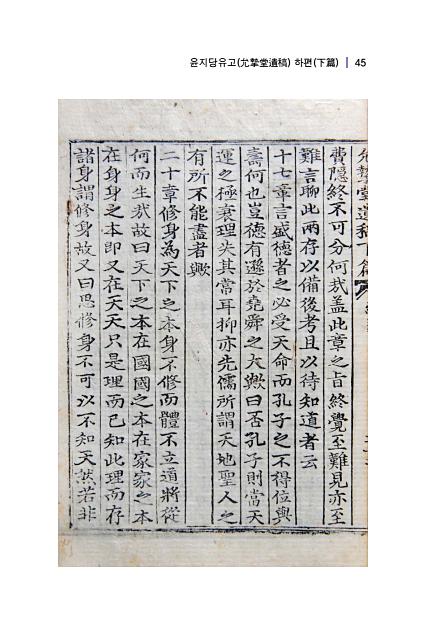 윤지당유고(允摯堂遺稿) 하편(下篇) | 45
允摯堂遺稿下篇
費隱終不可分何哉盖此章之旨終覺至難見亦至
難言聊此兩存以備後考且以待知道者云
十七章言盛德者之必受天命而孔子之不得位與
壽何也豈德有遜於堯舜之大歟曰否孔子則當天
運之極衰理失其常耳抑亦先儒所謂天地聖人之
有所不能盡者歟
二十章修身為天下之本身不修而體不立道將從
何而生哉故曰天下之本在國國之本在家家之本
在身身之本即又在天天只是理而已知此理而存
諸身謂修身故又曰思修身不可以不知天然若非